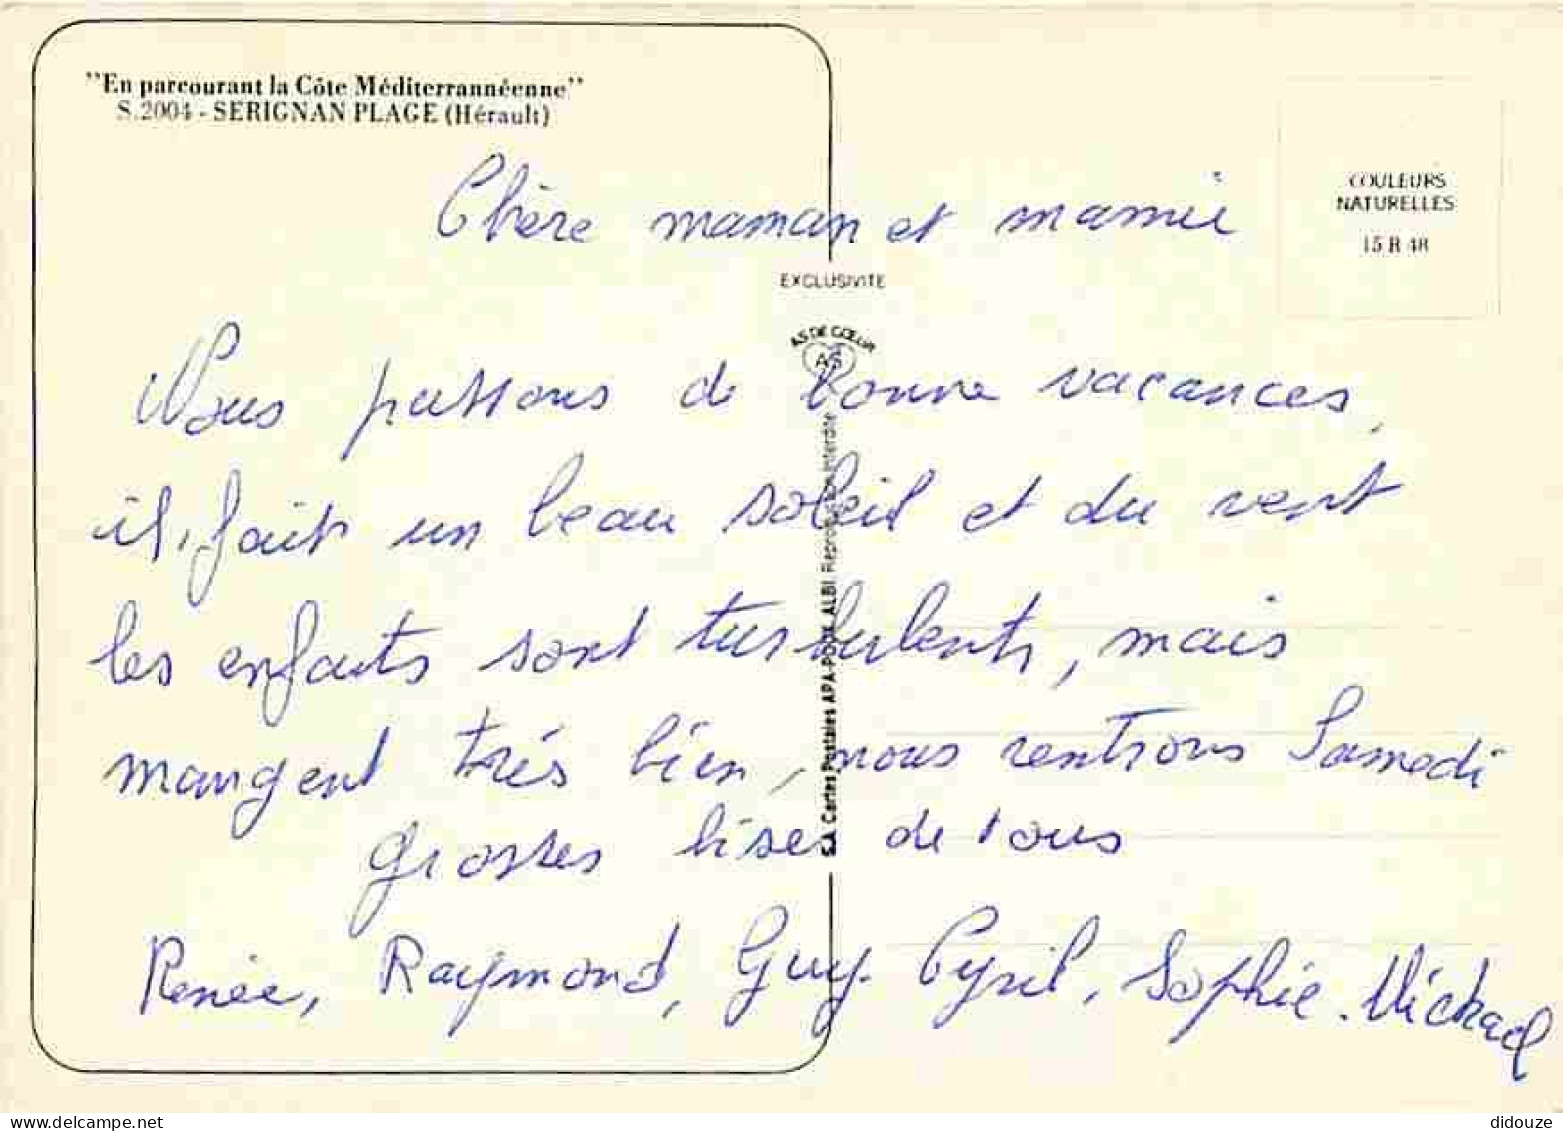 "En parcourant la Côte Méditerrannéenne"
S.2004 - SERIGNAN PLAGE (Hérault)
COULEURS
NATURELLES
15 R 48
Chère maman et mamie
EXCLUSIVITE
AS DE CŒUR
AS
Nous passons de bonne vacances,
il fait un beau soleil et du vent
les enfants sont turbulents, mais
mangent très bien, nous rentrons Samedi
grosses bises de tous
Renée, Raymond, Guy. Cyril, Sophie. Mickael
S.A. Cartes Postales APA-POUX ALBI. Reproduction interdite
didouze